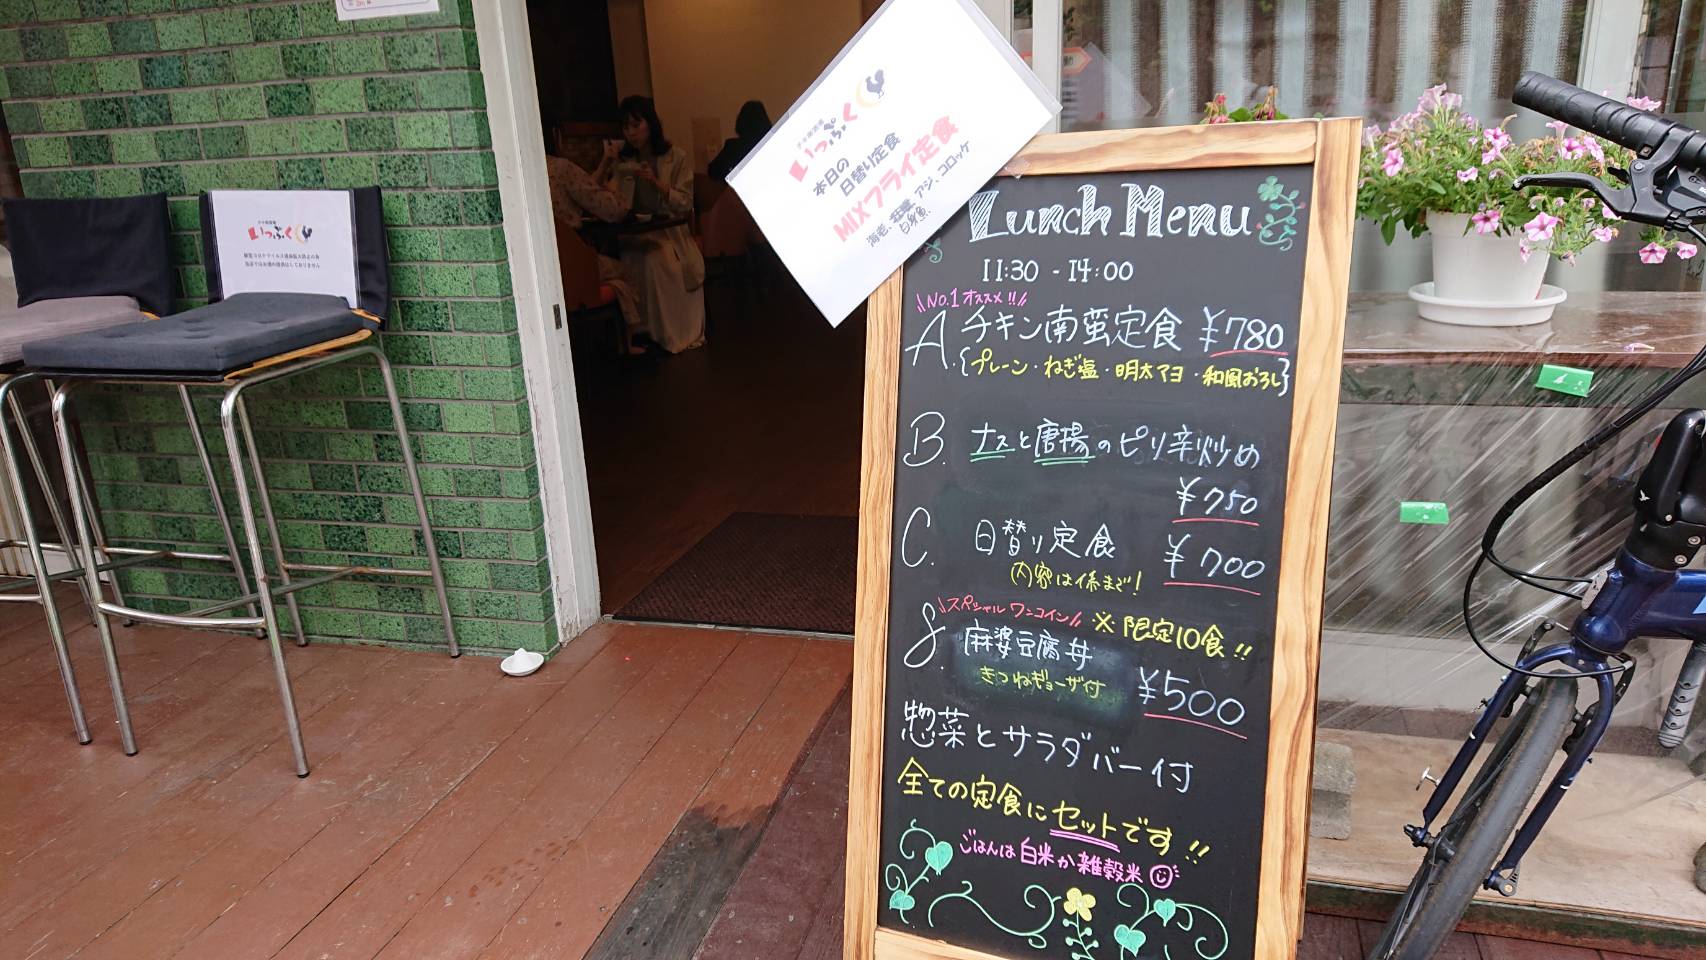 いっぷく
本日の
日替り定食
MIXフライ定食
海老、アジ、コロッケ
白身魚
いっぷく
Lunch Menu
11:30 - 14:00
No.1 オススメ!!
A. チキン南蛮定食 ¥780
{プレーン・ねぎ塩・明太マヨ・和風おろし}
B. ナスと唐揚のピリ辛炒め
¥750
C. 日替り定食 ¥700
内容は係まで!
スペシャルワンコイン ※限定10食!!
S. 麻婆豆腐丼
きつねギョーザ付 ¥500
惣菜とサラダバー付
全ての定食にセットです!!
ごはんは白米か雑穀米